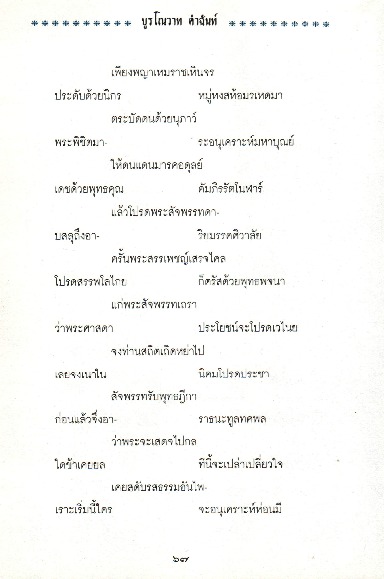 บุรโณวาท คำฉันท์
เพียงพญาเหมราชเหินจร
ประดับด้วยนิกร หมู่หงสห้อมรเหดมา
ตระบัดดนด้วยนุภาว์
พระพิชิตมา- ระอนุเคราะห์มหาบุณย์
ให้ดนแดนมารคอดุลย์
เดชด้วยพุทธคุณ คัมภิรรัตโนฬาร์
แล้วโปรดพระสัจพรรทดา-
บสลุถึงอา- ริยมรรคศิวาลัย
ครั้นพระสรรเพชญ์เสร็จไคล
โปรดสรรพโลไกย ก็ตรัสด้วยพุทธพจนา
แก่พระสัจพรรทเถรา
ว่าพระศาสดา ประโยชน์จะโปรดเวไนย
จงท่านสถิตเถิดหย่าไป
เลยจงเนาใน นิคมโปรดประชา
สัจพรรทรับพุทธฎีกา
ก่อนแล้วจึ่งอา- ราธนะทูลทศพล
ว่าพระจะเสดจไปกล
ใดข้าเคยยล ทีนี้จะเปล่าเปลี่ยวใจ
เคยสดับรสธรรมอันไพ-
เราะเริ่มนี้ใคร จะอนุเคราะห์ห่อนมี
๖๗